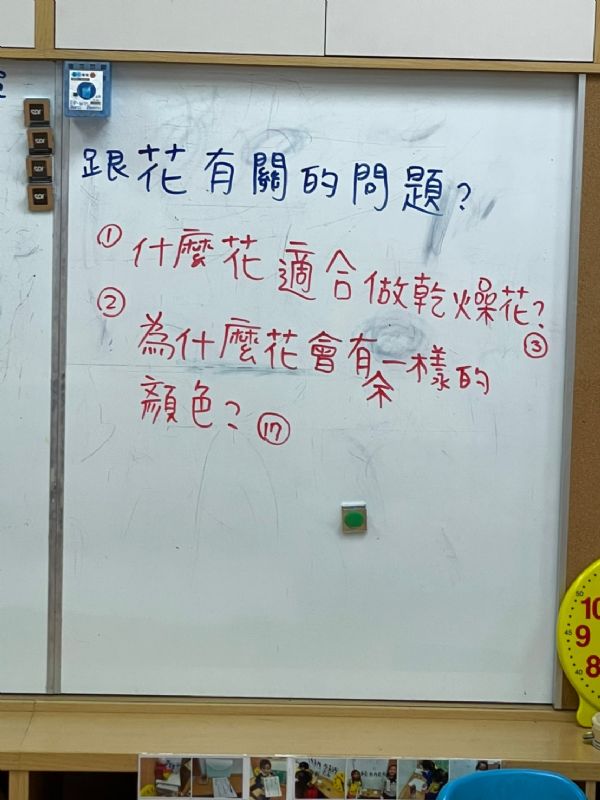 跟花有關的問題?
① 什麼花適合做乾燥花? ③
② 為什麼花會有不一樣的
顏色? ⑰
50
10
45
9
8
40